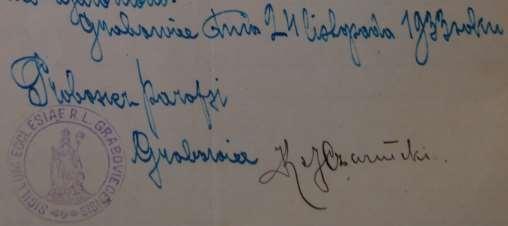 Grabowiec dnia 24 listopada 1933 roku
Proboszcz parafji
Grabowiec
K. J. Czarnecki
SIGILLUM ECCLESIAE R. L. GRABOVIECENSIS